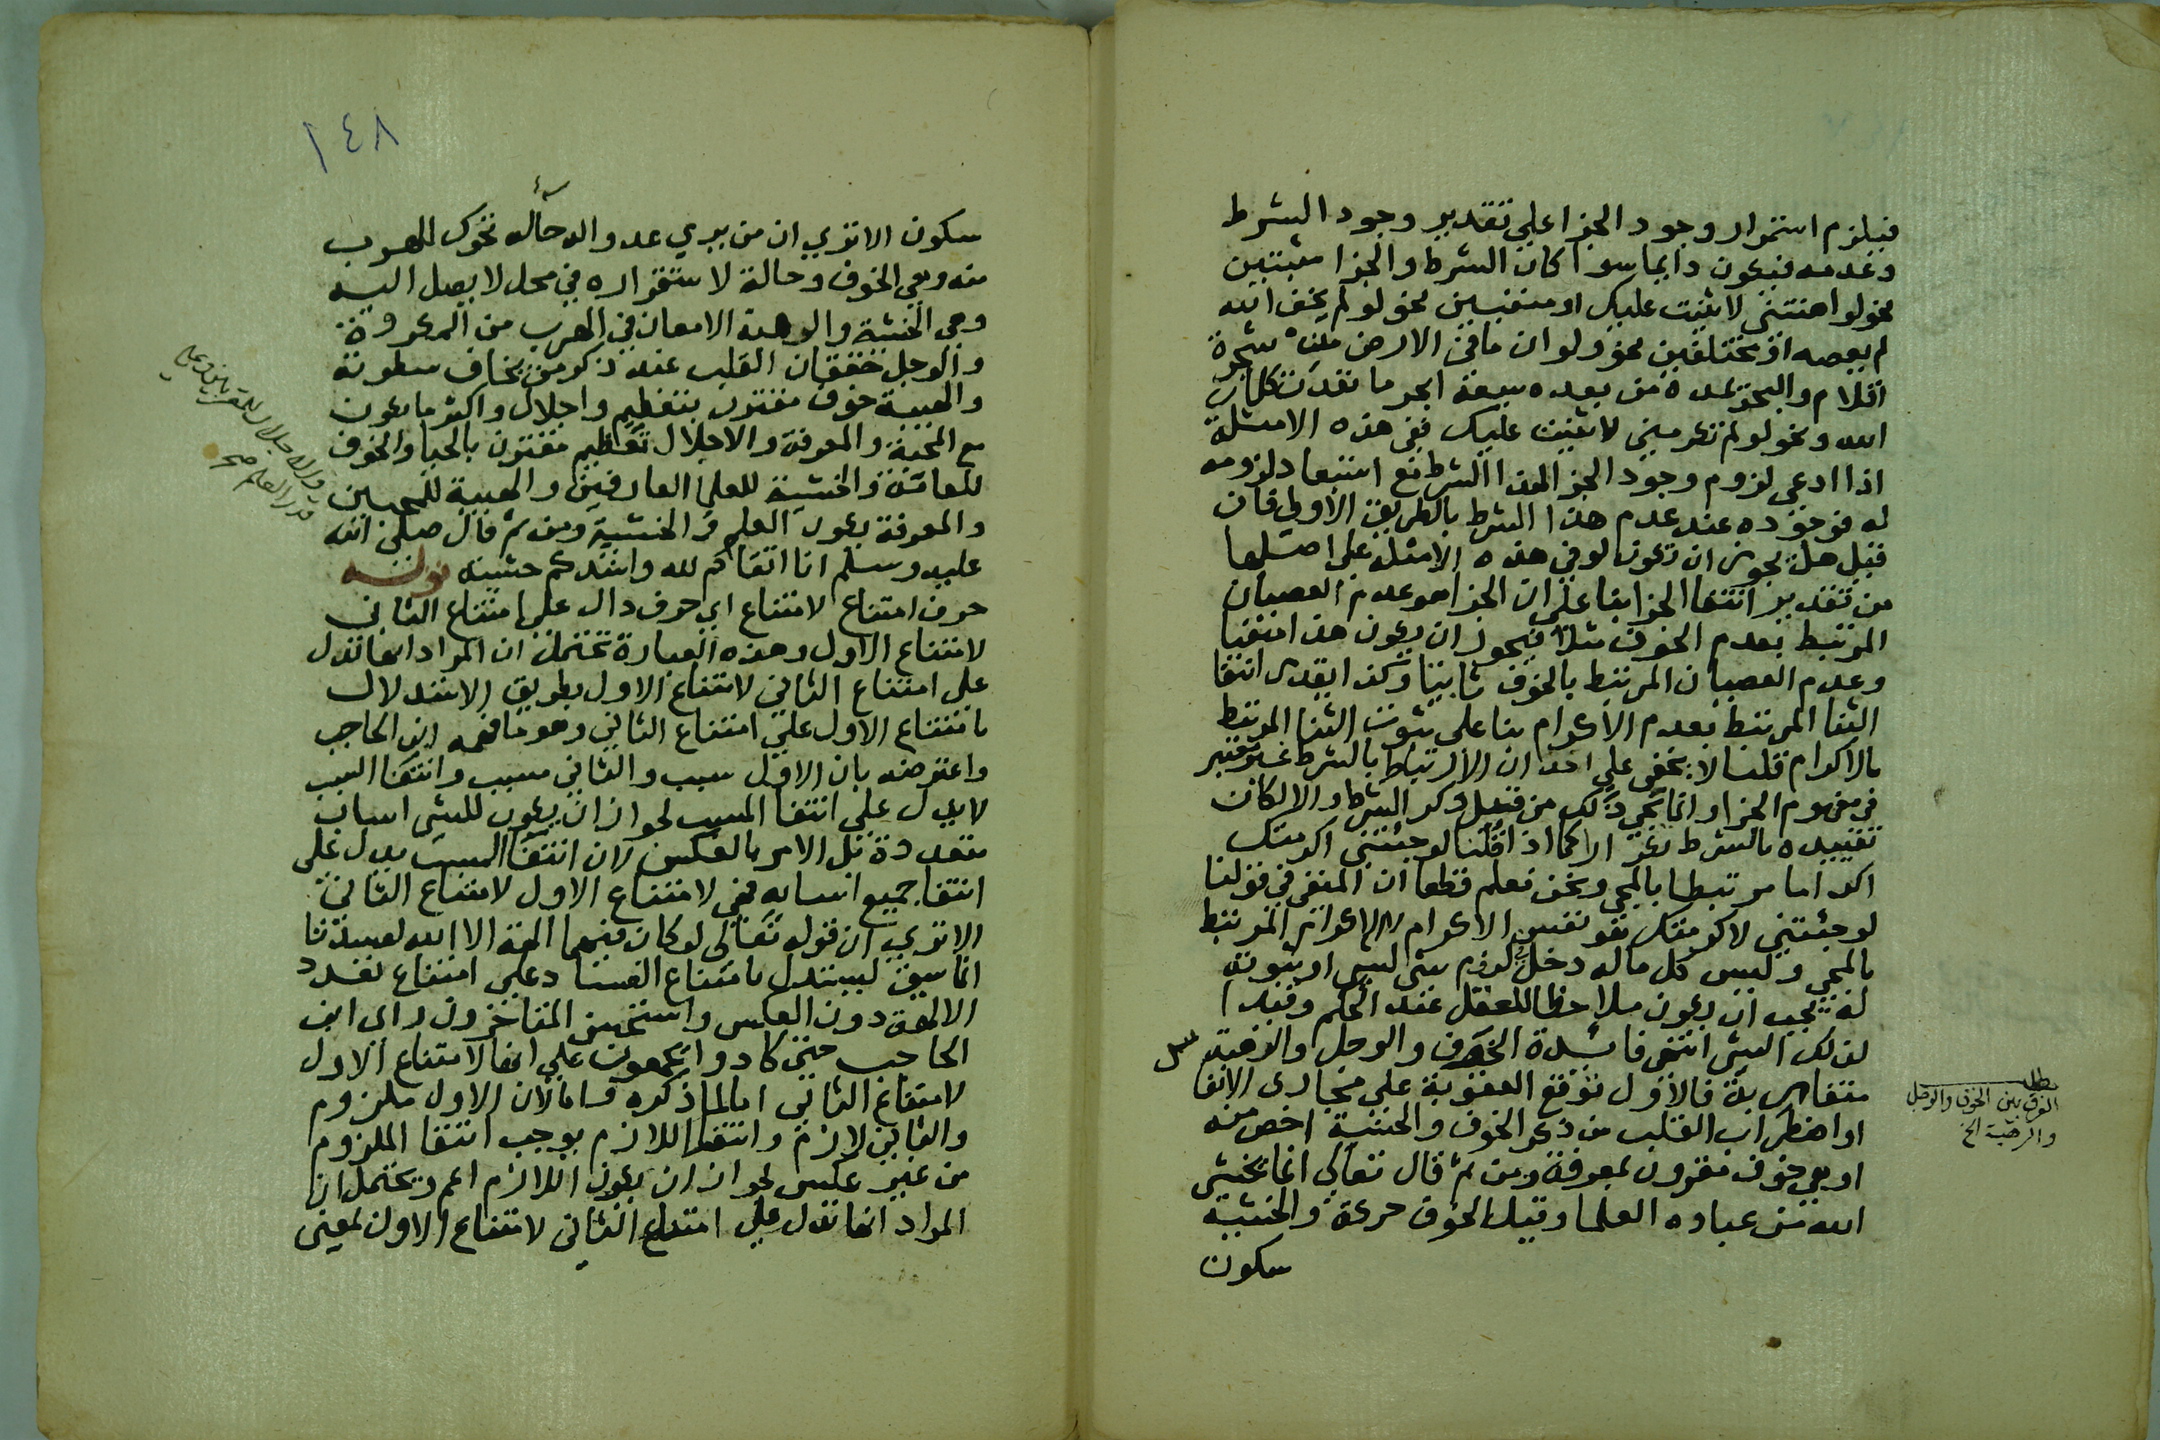 فيلزم استمرار وجود الجزا علي تقدير وجود الشرط
وعدمه فيكون دايما سوا كان الشرط والجزا مثبتين
نحو لو اهنتني لاثنيت عليك او منفيين نحو لو لم يخف الله
لم يعصه او مختلفين نحو ولو ان ما في الارض من شجرة
اقلام والبحر يمده من بعده سبعة ابحر ما نفدت كلمات
الله ونحو لو لم تكرمني لاثنيت عليك ففي هذه الامثلة
اذا ادعي لزوم وجود الجزا لهذا الشرط مع استبعاد لزومه
له فوجوده عند عدم هذا الشرط بالطريق الاولي فان
قيل هل يجوز ان تكون لو في هذه الامثلة علي اصلها
من تقدير انتفا الجزا بنا علي ان الجزا هو عدم العصيان
المرتبط بعدم الخوف مثلا فيجوز ان يكون هذا منتفيا
وعدم العصيان المرتبط بالخوف ثابتا وكذا يقدر انتفا
الثنا المرتبط بعدم الاكرام بنا علي ثبوت الثنا المرتبط
بالاكرام قلنا لا يخفي علي احد ان الارتباط بالشرط غير معتبر
في مفهوم الجزا وانما يجي ذلك من قبل ذكر الشرط والا لكان
تقييده بالشرط تكرارا كما اذا قلنا لو جئتني اكرمتك
اكراما مرتبطا بالمجي ونحن نعلم قطعا ان المنفي في قولنا
لو جئتني لاكرمتك هو نفس الاكرام لا الاكرام المرتبط
بالمجي وليس كل ما له دخل في لزوم شي لشي او ثبوته
له يجب ان يكون ملاحظا للعقل عند الحكم وقيدا
لذلك الشي انتهي فائدة الخوف والوجل والرهبة
متقاربة فالاول توقع العقوبة علي مجاري الانفاس
او اضطراب القلب من ذكر الخوف والخشية اخص منه
او هي خوف مقرون بمعرفة ومن ثم قال تعالي انما يخشي
الله من عباده العلما وقيل الخوف حركة والخشية
سكون
مطلب
الفرق بين الخوف والوجل
والرهبة الخ
١٤٨
سكون الا تري ان من يري عدوا له حالة تحرك للهرب
منه وهي الخوف وحالة لاستقراره في محل لا يصل اليه
وهي الخشية والرهبة الامعان في الهرب من المكروه
والوجل خفقان القلب عند ذكر من يخاف سطوته
والهيبة خوف مقترن بتعظيم واجلال واكثر ما يكون
مع المحبة والمعرفة والاجلال تعظيم مقترن بالحب والخوف
للعامة والخشية للعلما العارفين والهيبة للمحبين
والاجلال للمقربين وعلي
قدر العلم صح
والمعرفة يكون العلم والخشية ومن ثم قال صلي الله
عليه وسلم انا اتقاكم لله واشدكم خشية قوله
حرف امتناع لامتناع اي حرف دال علي امتناع الثاني
لامتناع الاول وهذه العبارة تحتمل ان المراد انها تدل
علي امتناع الثاني لامتناع الاول بطريق الاستدلال
بامتناع الاول علي امتناع الثاني وهو ما فهمه ابن الحاجب
واعترضه بان الاول سبب والثاني مسبب وانتفا السبب
لا يدل علي انتفا المسبب لجواز ان يكون للشي اسباب
متعددة بل الامر بالعكس لان انتفا المسبب يدل علي
انتفا جميع اسبابه فهي لامتناع الاول لامتناع الثاني
الا تري ان قوله تعالي لو كان فيهما الهة الا الله لفسدتا
انما سيق ليستدل بامتناع الفساد علي امتناع تعدد
الالهة دون العكس واستحسن المتاخرون راي ابن
الحاجب حتي كادوا يجمعون علي انها لامتناع الاول
لامتناع الثاني اما لما ذكره واما لان الاول ملزوم
والثاني لازم وانتفا اللازم يوجب انتفا الملزوم
من غير عكس لجواز ان يكون اللازم اعم ويحتمل ان
المراد انها تدل علي امتناع الثاني لامتناع الاول بمعني